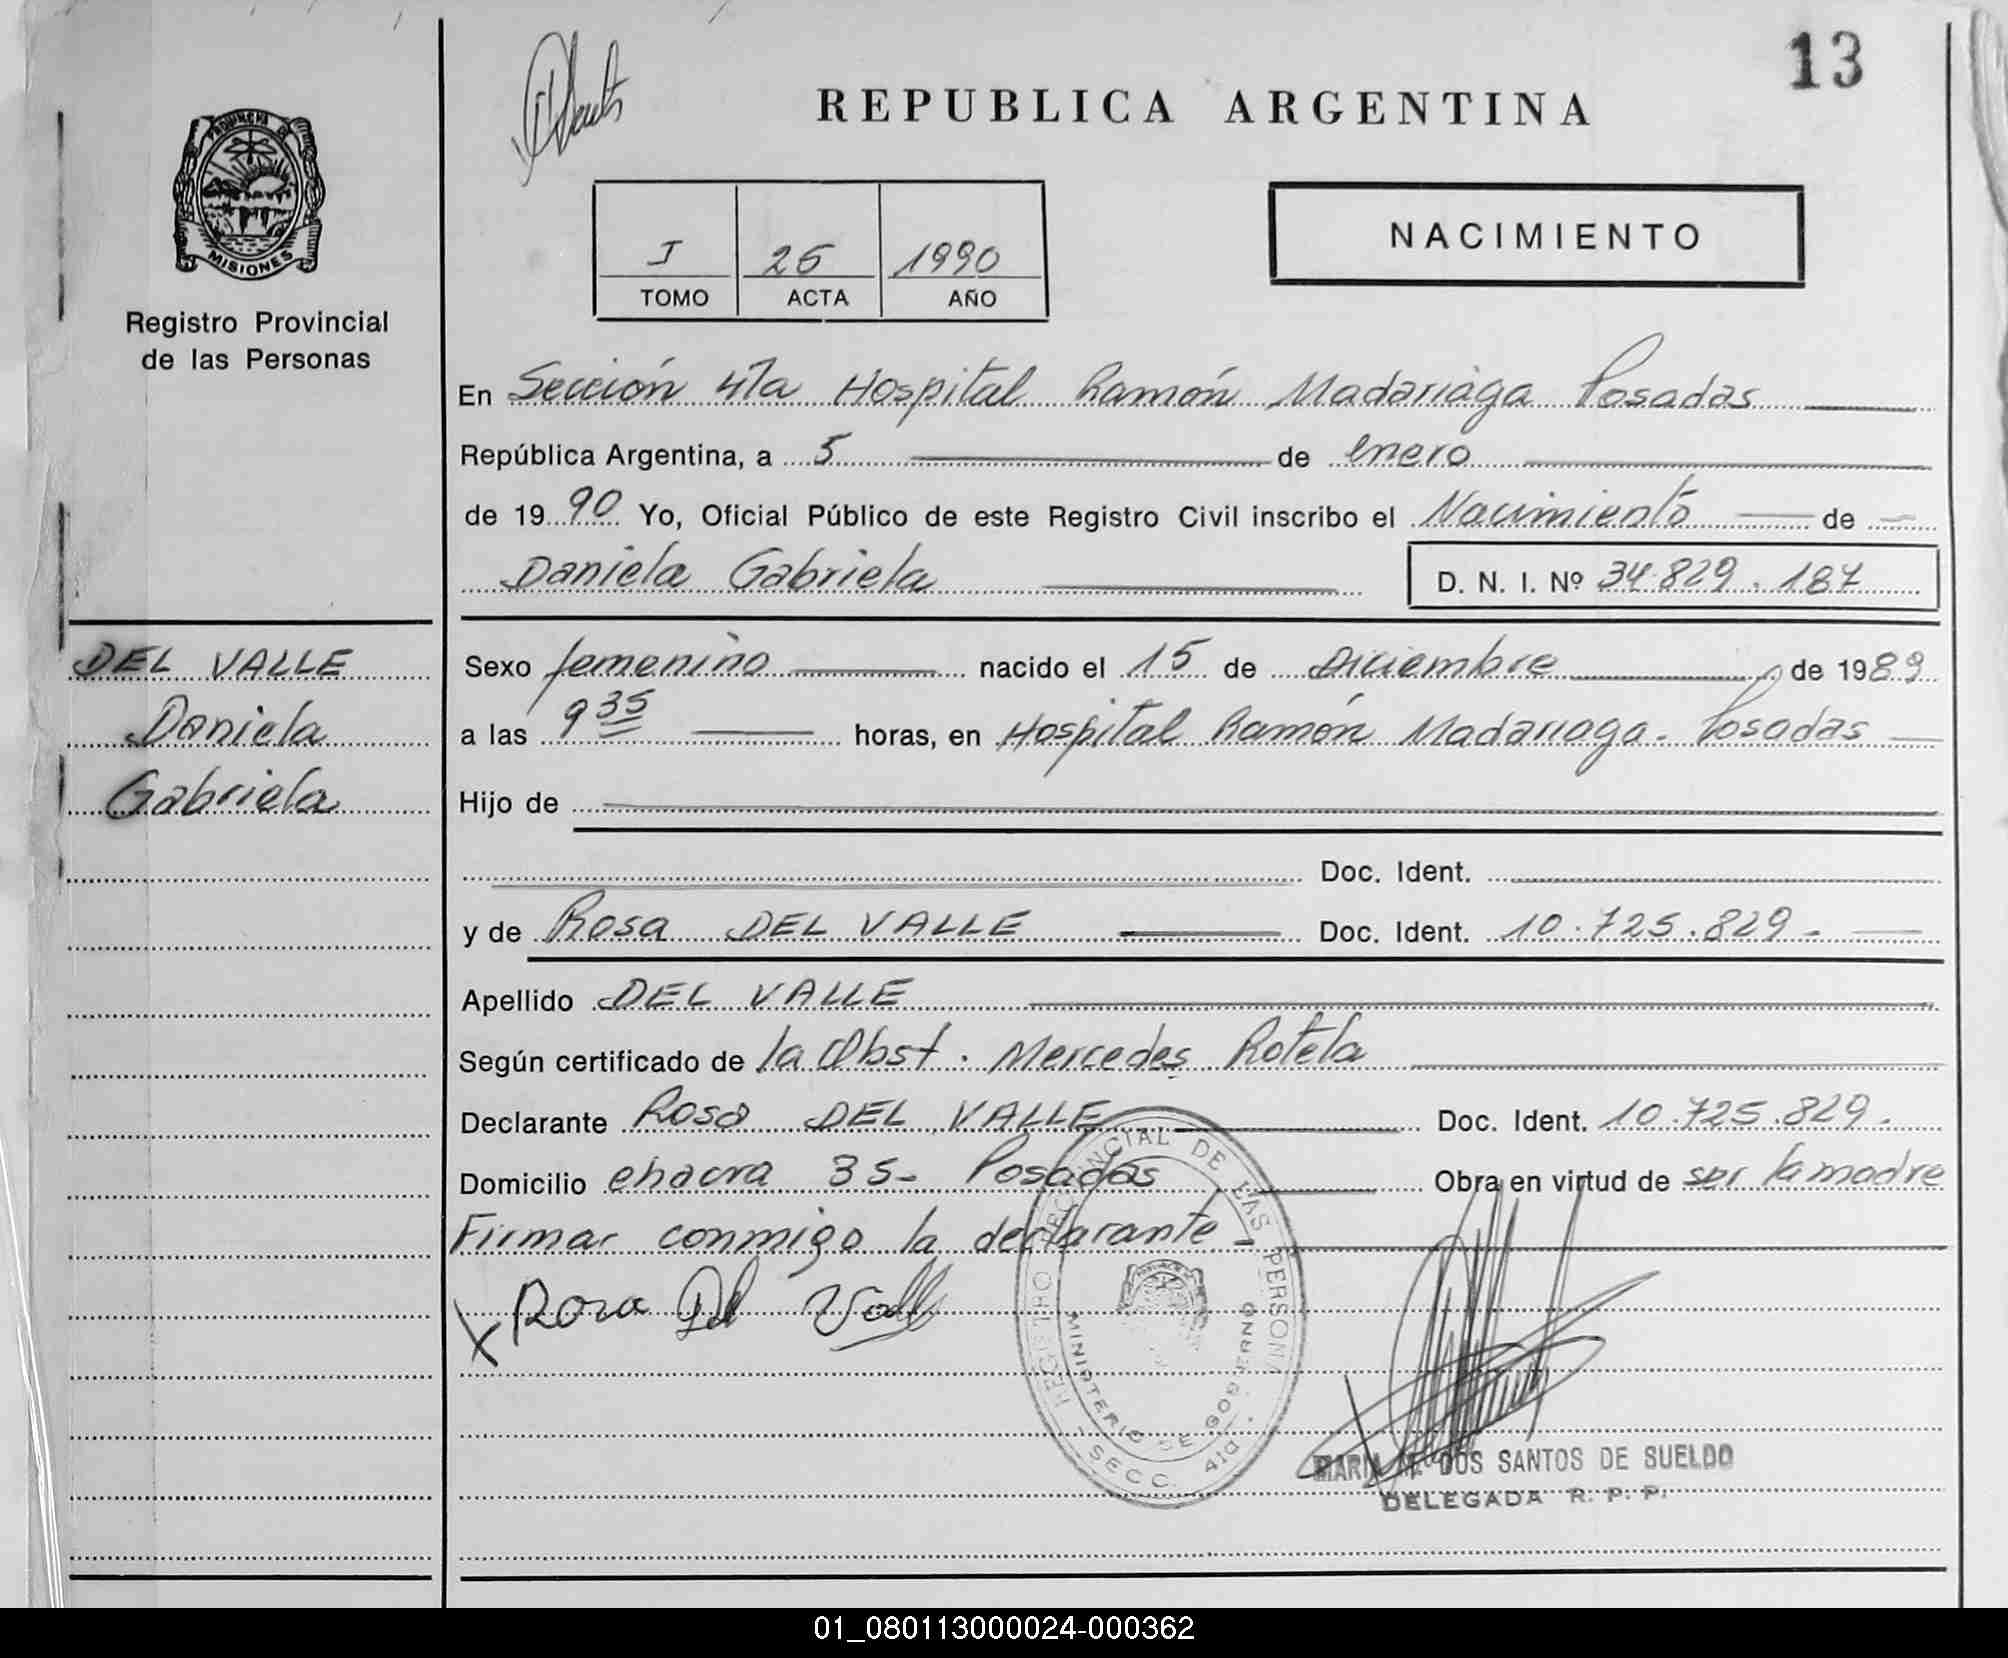 13
REPUBLICA ARGENTINA
PROVINCIA DE
MISIONES
Registro Provincial
de las Personas
I 26 1990
TOMO ACTA AÑO
NACIMIENTO
En Sección 4ta Hospital Ramón Madariaga Posadas
República Argentina, a 5 de enero
de 1990 Yo, Oficial Público de este Registro Civil inscribo el Nacimiento de
Daniela Gabriela D. N. I. Nº 34.829.187
DEL VALLE
Daniela
Gabriela
Sexo femenino nacido el 15 de Diciembre de 1989
a las 9 35 horas, en Hospital Ramón Madariaga. Posadas
Hijo de
Doc. Ident.
y de Rosa DEL VALLE Doc. Ident. 10.725.829.
Apellido DEL VALLE
Según certificado de la Obst. Mercedes Rotela
Declarante Rosa DEL VALLE Doc. Ident. 10.725.829.
Domicilio chacra 35- Posadas Obra en virtud de ser la madre
Firmar conmigo la declarante-
X Rosa Del Valle
REGISTRO PROVINCIAL DE LAS PERSONAS
MINISTERIO DE GOBIERNO
- SECC. 4ta -
MARIA M. DOS SANTOS DE SUELDO
DELEGADA R. P. P.
01_080113000024-000362